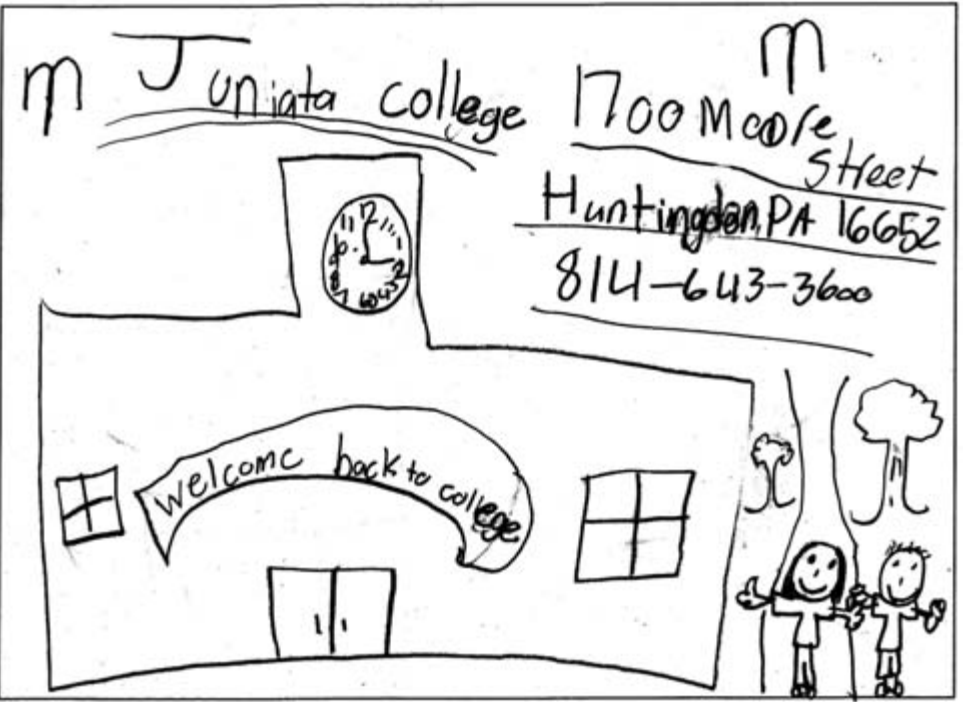 m Juniata college
m
1700 Moore
Street
Huntingdon, PA 16652
814-643-3600
11 12 1
10 2
8 3
7 6 5 4
welcome back to college